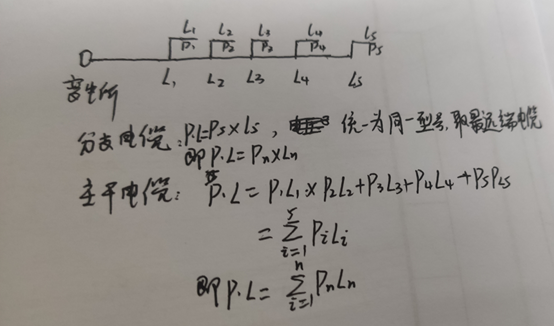 L₁ L₂ L₃ L₄ L₅
P₁ P₂ P₂ P₄ P₅
L₁ L₂ L₃ L₄ L₅
变电所
分支电缆:P.L=P₅×L₅, 统一为同一型号,取最远端电缆
即P.L=Pₙ×Lₙ
主干电缆: P.L=P₁L₁×P₂L₂+P₃L₃+P₄L₄+P₅PL₅
=∑⁵ᵢ₌₁ PᵢLᵢ
即P.L=∑ⁿᵢ₌₁ PₙLₙ